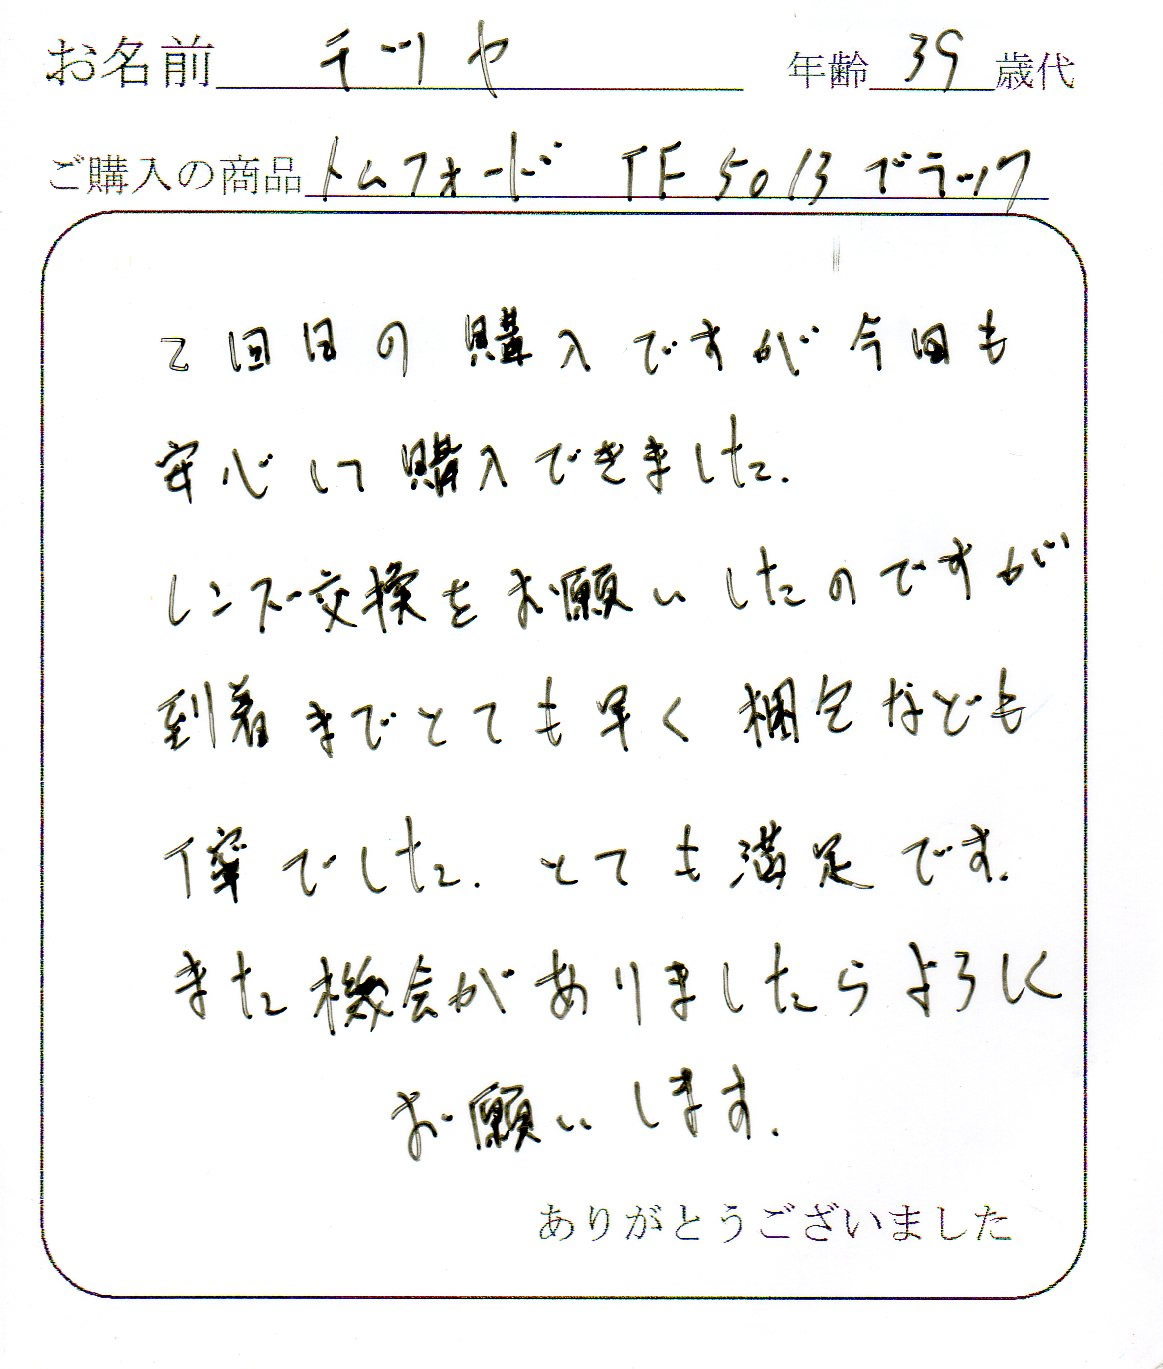 お名前 テツヤ 年齢 39 歳代
ご購入の商品 トムフォード TF5013 ブラック
2回目の購入ですが今回も
安心して購入できました.
レンズ交換をお願いしたのですが
到着までとても早く梱包なども
丁寧でした. とても満足です.
また機会がありましたらよろしく
お願いします.
ありがとうございました